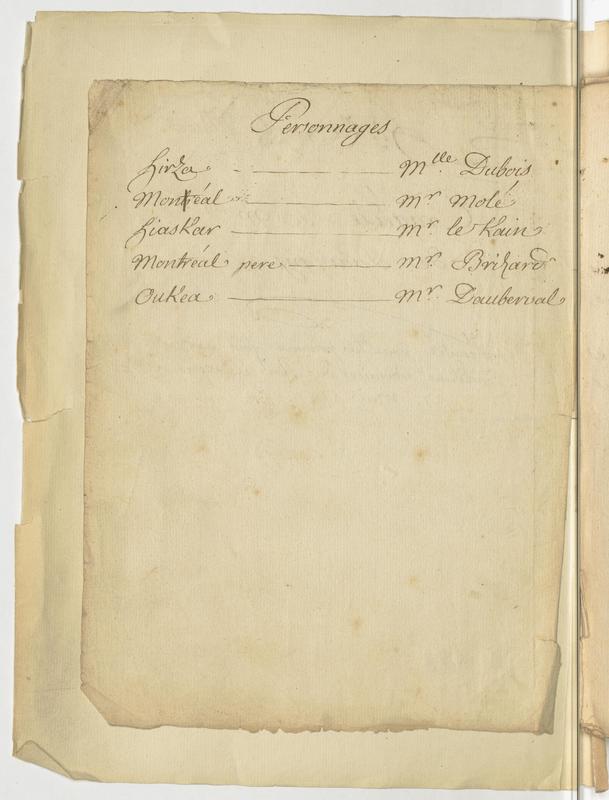 Personnages
hirza - — Mlle Dubois
Montréal — Mr Molé
hiaskar — Mr le Kain
Montréal pere — Mr Brizard
oukea — Mr Dauberval